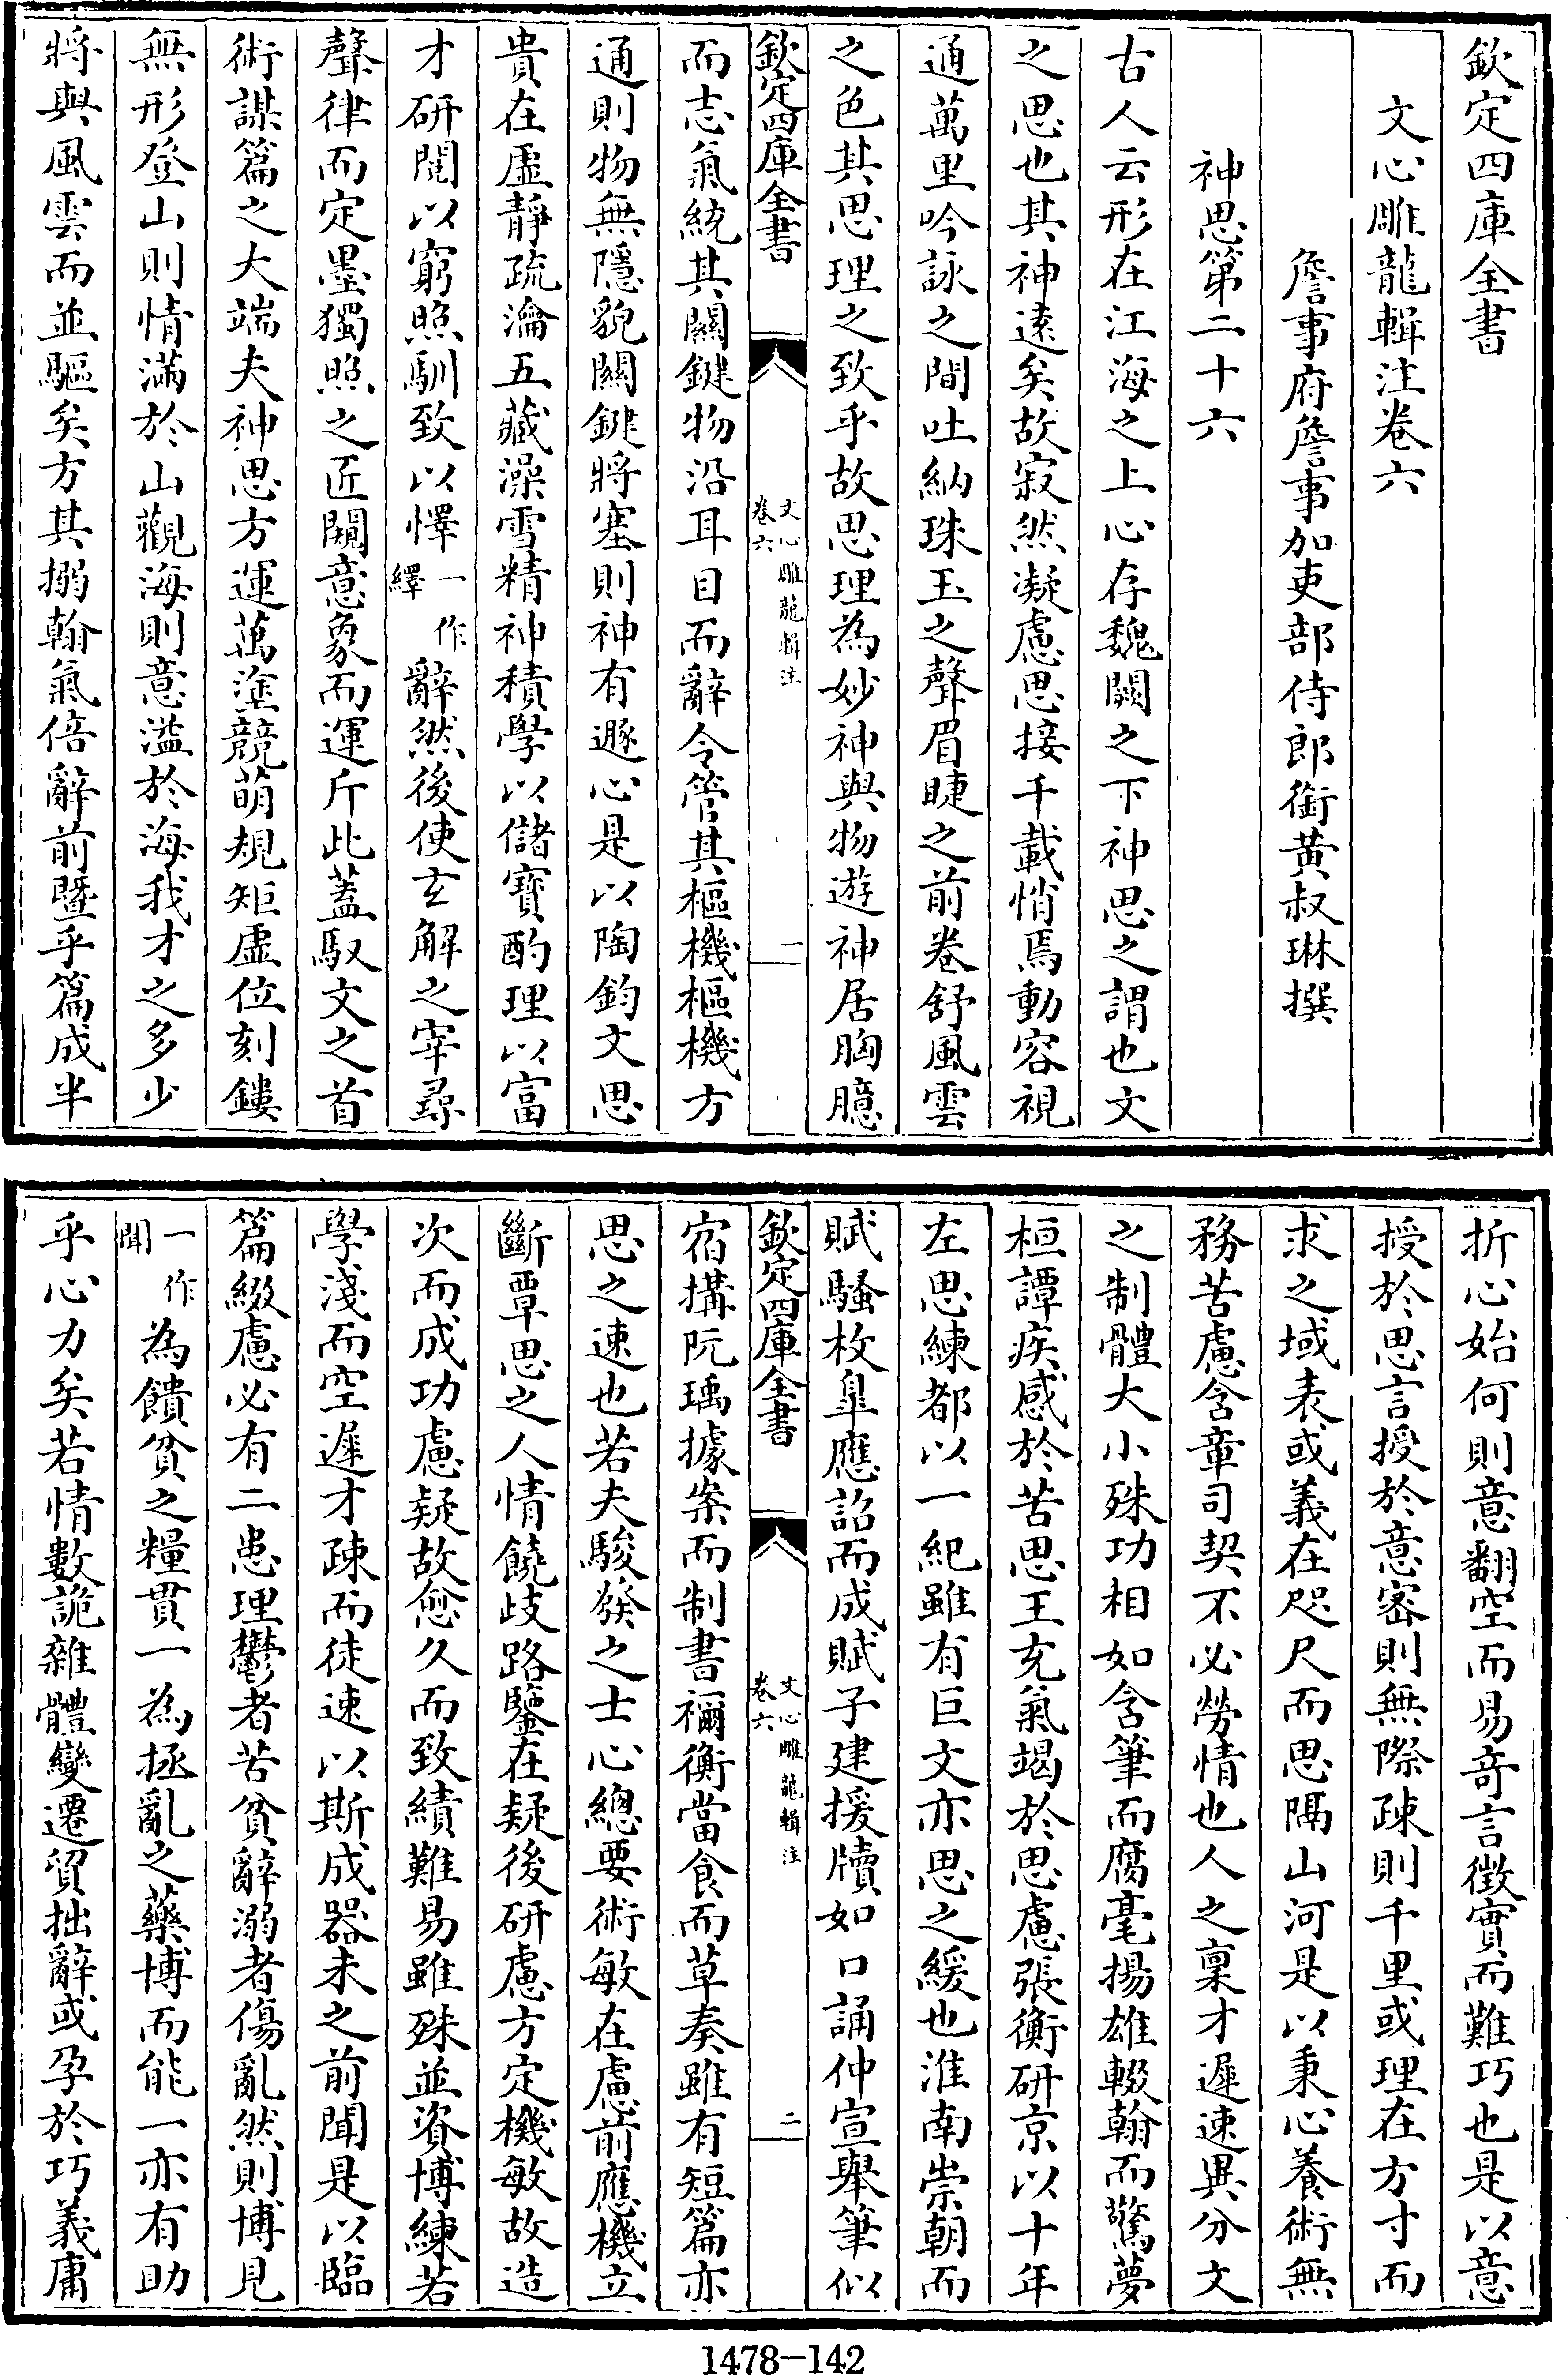 欽定四庫全書
文心雕龍輯注卷六
詹事府詹事加吏部侍郎銜黄叔琳撰
神思第二十六
古人云形在江海之上心存魏闕之下神思之謂也文
之思也其神逺矣故寂然凝慮思接千載悄焉動容視
通萬里吟詠之間吐納珠玉之聲眉睫之前卷舒風雲
之色其思理之致乎故思理為妙神與物遊神居胸臆
欽定四庫全書
文心雕龍輯注
卷六
一
而志氣統其關鍵物沿耳目而辭令管其樞機樞機方
通則物無隱貌關鍵將塞則神有遯心是以陶鈞文思
貴在虛靜疏瀹五藏澡雪精神積學以儲寶酌理以富
才研閱以窮照馴致以懌一作繹辭然後使𤣥解之宰尋
聲律而定墨獨照之匠闚意象而運斤此蓋馭文之首
術謀篇之大端夫神思方運萬塗競萌規矩虛位刻鏤
無形登山則情滿於山觀海則意溢於海我才之多少
將與風雲而並驅矣方其搦翰氣倍辭前暨乎篇成半
折心始何則意翻空而易竒言徵實而難巧也是以意
授於思言授於意密則無際疎則千里或理在方寸而
求之域表或義在咫尺而思隔山河是以秉心養術無
務苦慮含章司契不必勞情也人之稟才遲速異分文
之制體大小殊功相如含筆而腐毫揚雄輟翰而驚夢
桓譚疾感於苦思王充氣竭於思慮張衡研京以十年
左思練都以一紀雖有巨文亦思之緩也淮南崇朝而
賦騷枚臯應詔而成賦子建援牘如口誦仲宣舉筆似
欽定四庫全書
文心雕龍輯注
卷六
二
宿搆阮瑀據案而制書禰衡當食而草奏雖有短篇亦
思之速也若夫駿發之士心總要術敏在慮前應機立
斷覃思之人情饒歧路鑒在疑後研慮方定機敏故造
次而成功慮疑故愈久而致績難易雖殊並資博練若
學淺而空遲才疎而徒速以斯成器未之前聞是以臨
篇綴慮必有二患理鬱者苦貧辭溺者傷亂然則博見
一作聞為饋貧之糧貫一為拯亂之藥博而能一亦有助
乎心力矣若情數詭雜體變遷貿拙辭或孕於巧義庸
1478-142